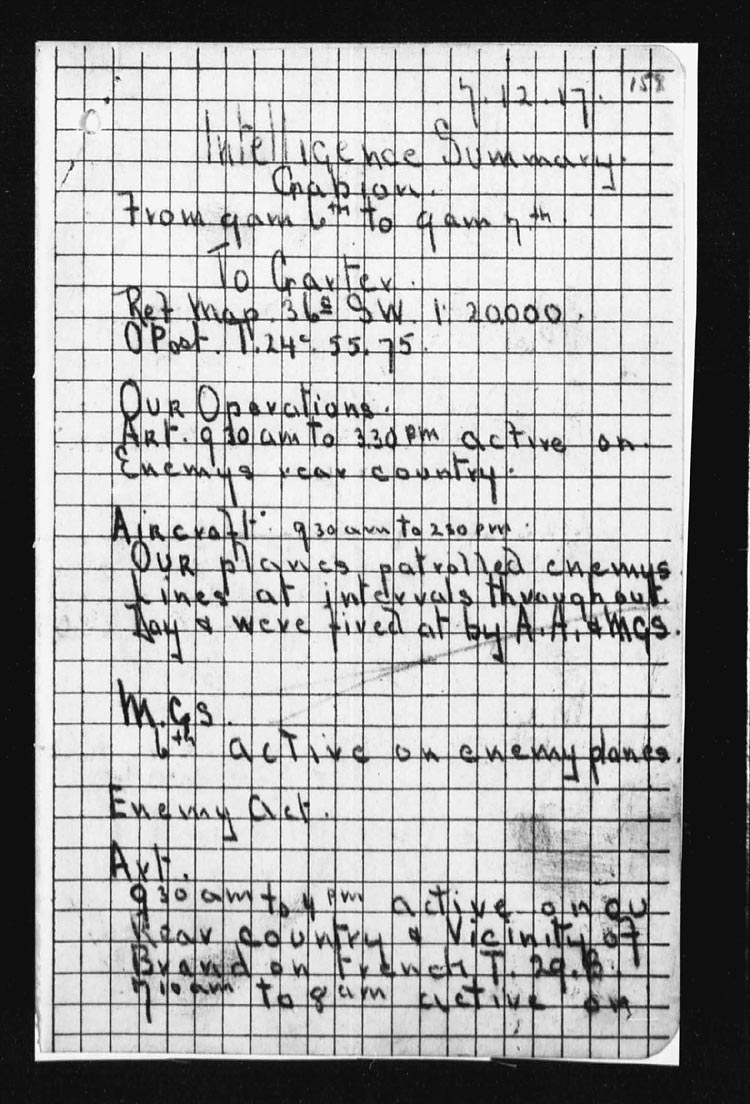 158
7.12.17.
Intelligence Summary.
Gapion.
From 9am 6th to 9am 7th.
To Garter.
Ref Map. 36a SW. 1: 20.000.
O Post. T.24c. 55.75.
OUR Operations.
ART. 9 30 am to 3.30 pm active on.
Enemys rear country.
Aircraft. 9 30 am to 2 30 pm.
OUR planes patrolled enemys
Lines at intervals throughout.
Day & were fired at by A.A. & MGS.
M.GS.
6th active on enemy planes.
Enemy Act.
Art.
9 30 am to 4 pm active on ou
Rear country & Vicinity of
Brand on French T. 29.B.
7 10 am to 8 am active on